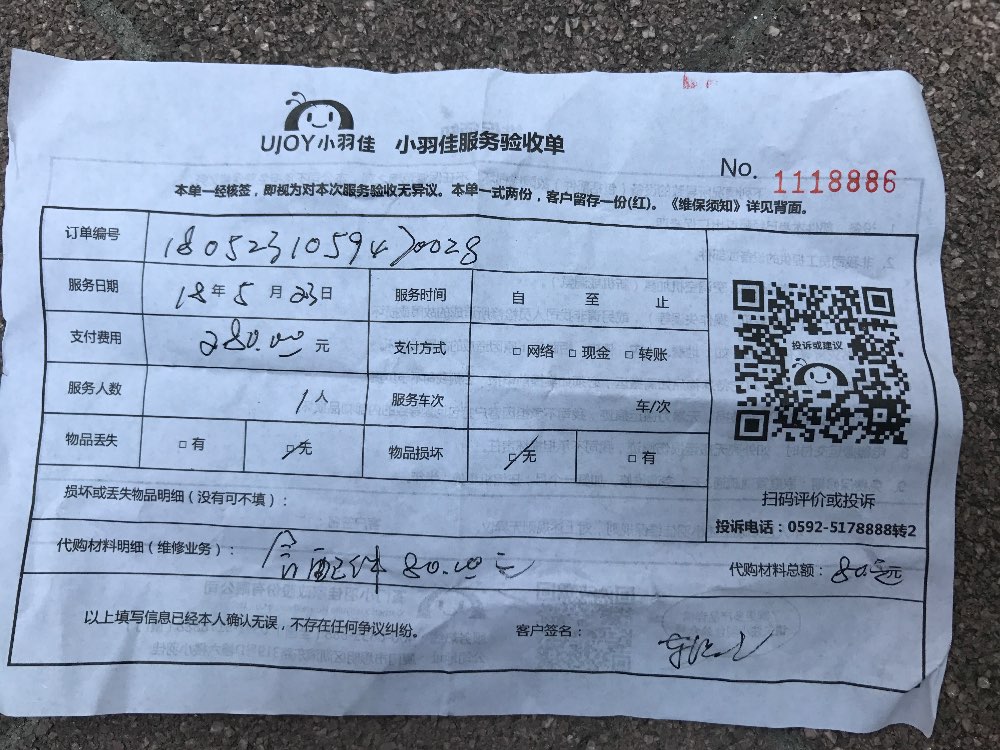 UJOY小羽佳 小羽佳服务验收单
No. 1118886
本单一经核签，即视为对本次服务验收无异议。本单一式两份，客户留存一份(红)。《维保须知》详见背面。
订单编号 1805231059470028
服务日期 18年5月23日 服务时间 自 至 止
支付费用 280.00元 支付方式 □网络 □现金 □转账
投诉或建议
服务人数 1人 服务车次 车/次
物品丢失 □有 □无 物品损坏 □无 □有
损坏或丢失物品明细（没有可不填）：
扫码评价或投诉
投诉电话：0592-5178888转2
代购材料明细（维修业务）： 含配件 80.00元
代购材料总额： 80元
以上填写信息已经本人确认无误，不存在任何争议纠纷。 客户签名：